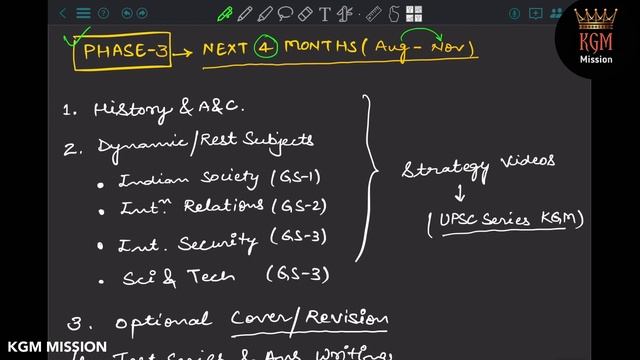 PHASE-3 → NEXT 4 MONTHS (Aug - Nov)
KGM
Mission
1. History & A&C.
2. Dynamic/Rest Subjects
• Indian Society (GS-1)
• Intⁿ. Relations (GS-2)
• Int. Security (GS-3)
• Sci & Tech (GS-3)
Strategy Videos
↓
(UPSC Series KGM)
3. Optional Cover/Revision
Test Series & Ans Writing
KGM MISSION